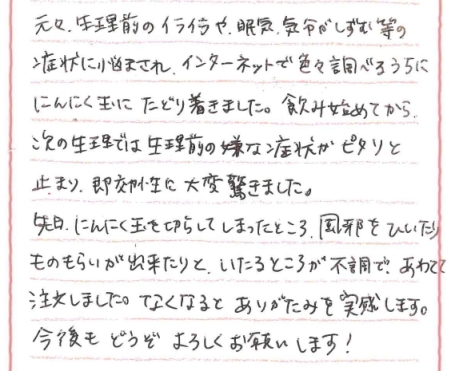 元々、生理前のイライラや、眠気、気分がしずむ等の
症状に悩まされ、インターネットで色々調べるうちに
にんにく玉に たどり着きました。飲み始めてから、
次の生理では生理前の嫌な症状がピタリと
止まり、即効性に大変驚きました。
先日、にんにく玉を切らしてしまったところ、風邪をひいたり
ものもらいが出来たりと、いたるところが不調で、あわてて
注文しました。なくなると ありがたみを実感します。
今後も どうぞ よろしくお願いします!